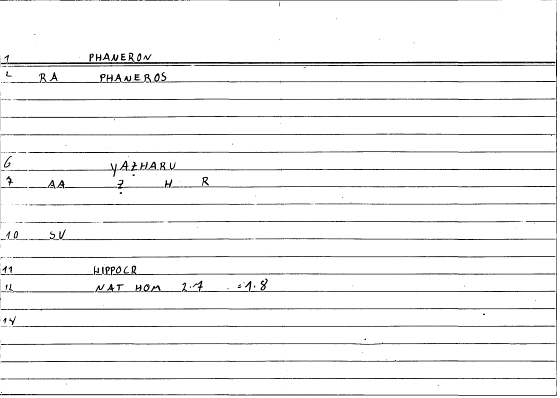 1 PHANERON
2 RA PHANEROS
6 yAẒHARU
7 AA Ẓ H R
10 SV
11 HIPPOCR
12 NAT HOM 2.7 =1.8
14